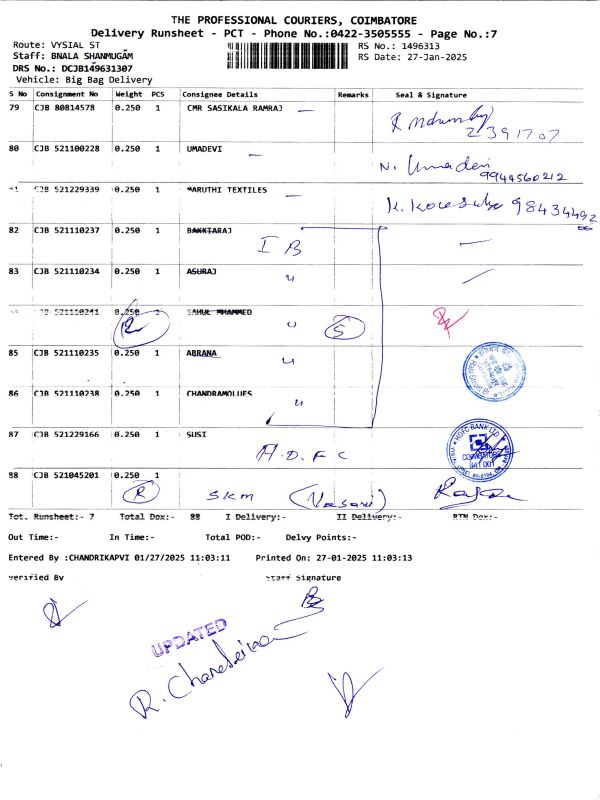 THE PROFESSIONAL COURIERS, COIMBATORE
Delivery Runsheet - PCT - Phone No.:0422-3505555 - Page No.:7
Route: VYSIAL ST
RS No.: 1496313
Staff: BNALA SHANMUGAM
RS Date: 27-Jan-2025
DRS No.: DCJB149631307
Vehicle: Big Bag Delivery
S No Consignment No Weight PCS Consignee Details Remarks Seal & Signature
79 CJB 80814578 0.250 1 CMR SASIKALA RAMRAJ
2391707
80 CJB 521100228 0.250 1 UMADEVI
N. Umadevi
9944560212
CJB 521229339 0.250 1 MARUTHI TEXTILES
98434492
82 CJB 521110237 0.250 1 BAKKIARAJ
I B
83 CJB 521110234 0.250 1 ASURAJ
CJB 521110241 0.250 1 SAHUL MHAMMED
5
85 CJB 521110235 0.250 1 ABRANA
86 CJB 521110238 0.250 1 CHANDRAMOLUES
87 CJB 521229166 0.250 1 SUSI
H.D.F C
HDFC BANK LTD
88 CJB 521045201 0.250 1
R SKM
Tot. Runsheet:- 7 Total Dox:- 88 I Delivery:- II Delivery:- RTN Dox:-
Out Time:- In Time:- Total POD:- Delvy Points:-
Entered By :CHANDRIKAPVI 01/27/2025 11:03:11 Printed On: 27-01-2025 11:03:13
Verified By Staff Signature
UPDATED